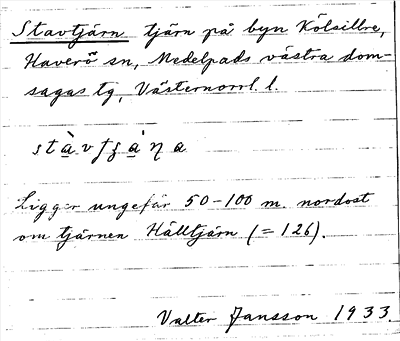 Stavtjärn tjärn på byn Kölsillre,
Haverö sn, Medelpads västra dom-
sagas tg, Västernorrl. l.
Ligger ungefär 50-100 m. nordost
om tjärnen Hälltjärn (= 126).
Valter Jansson 1933.